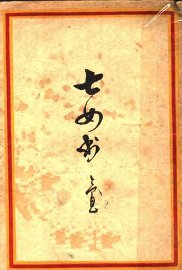 七女书